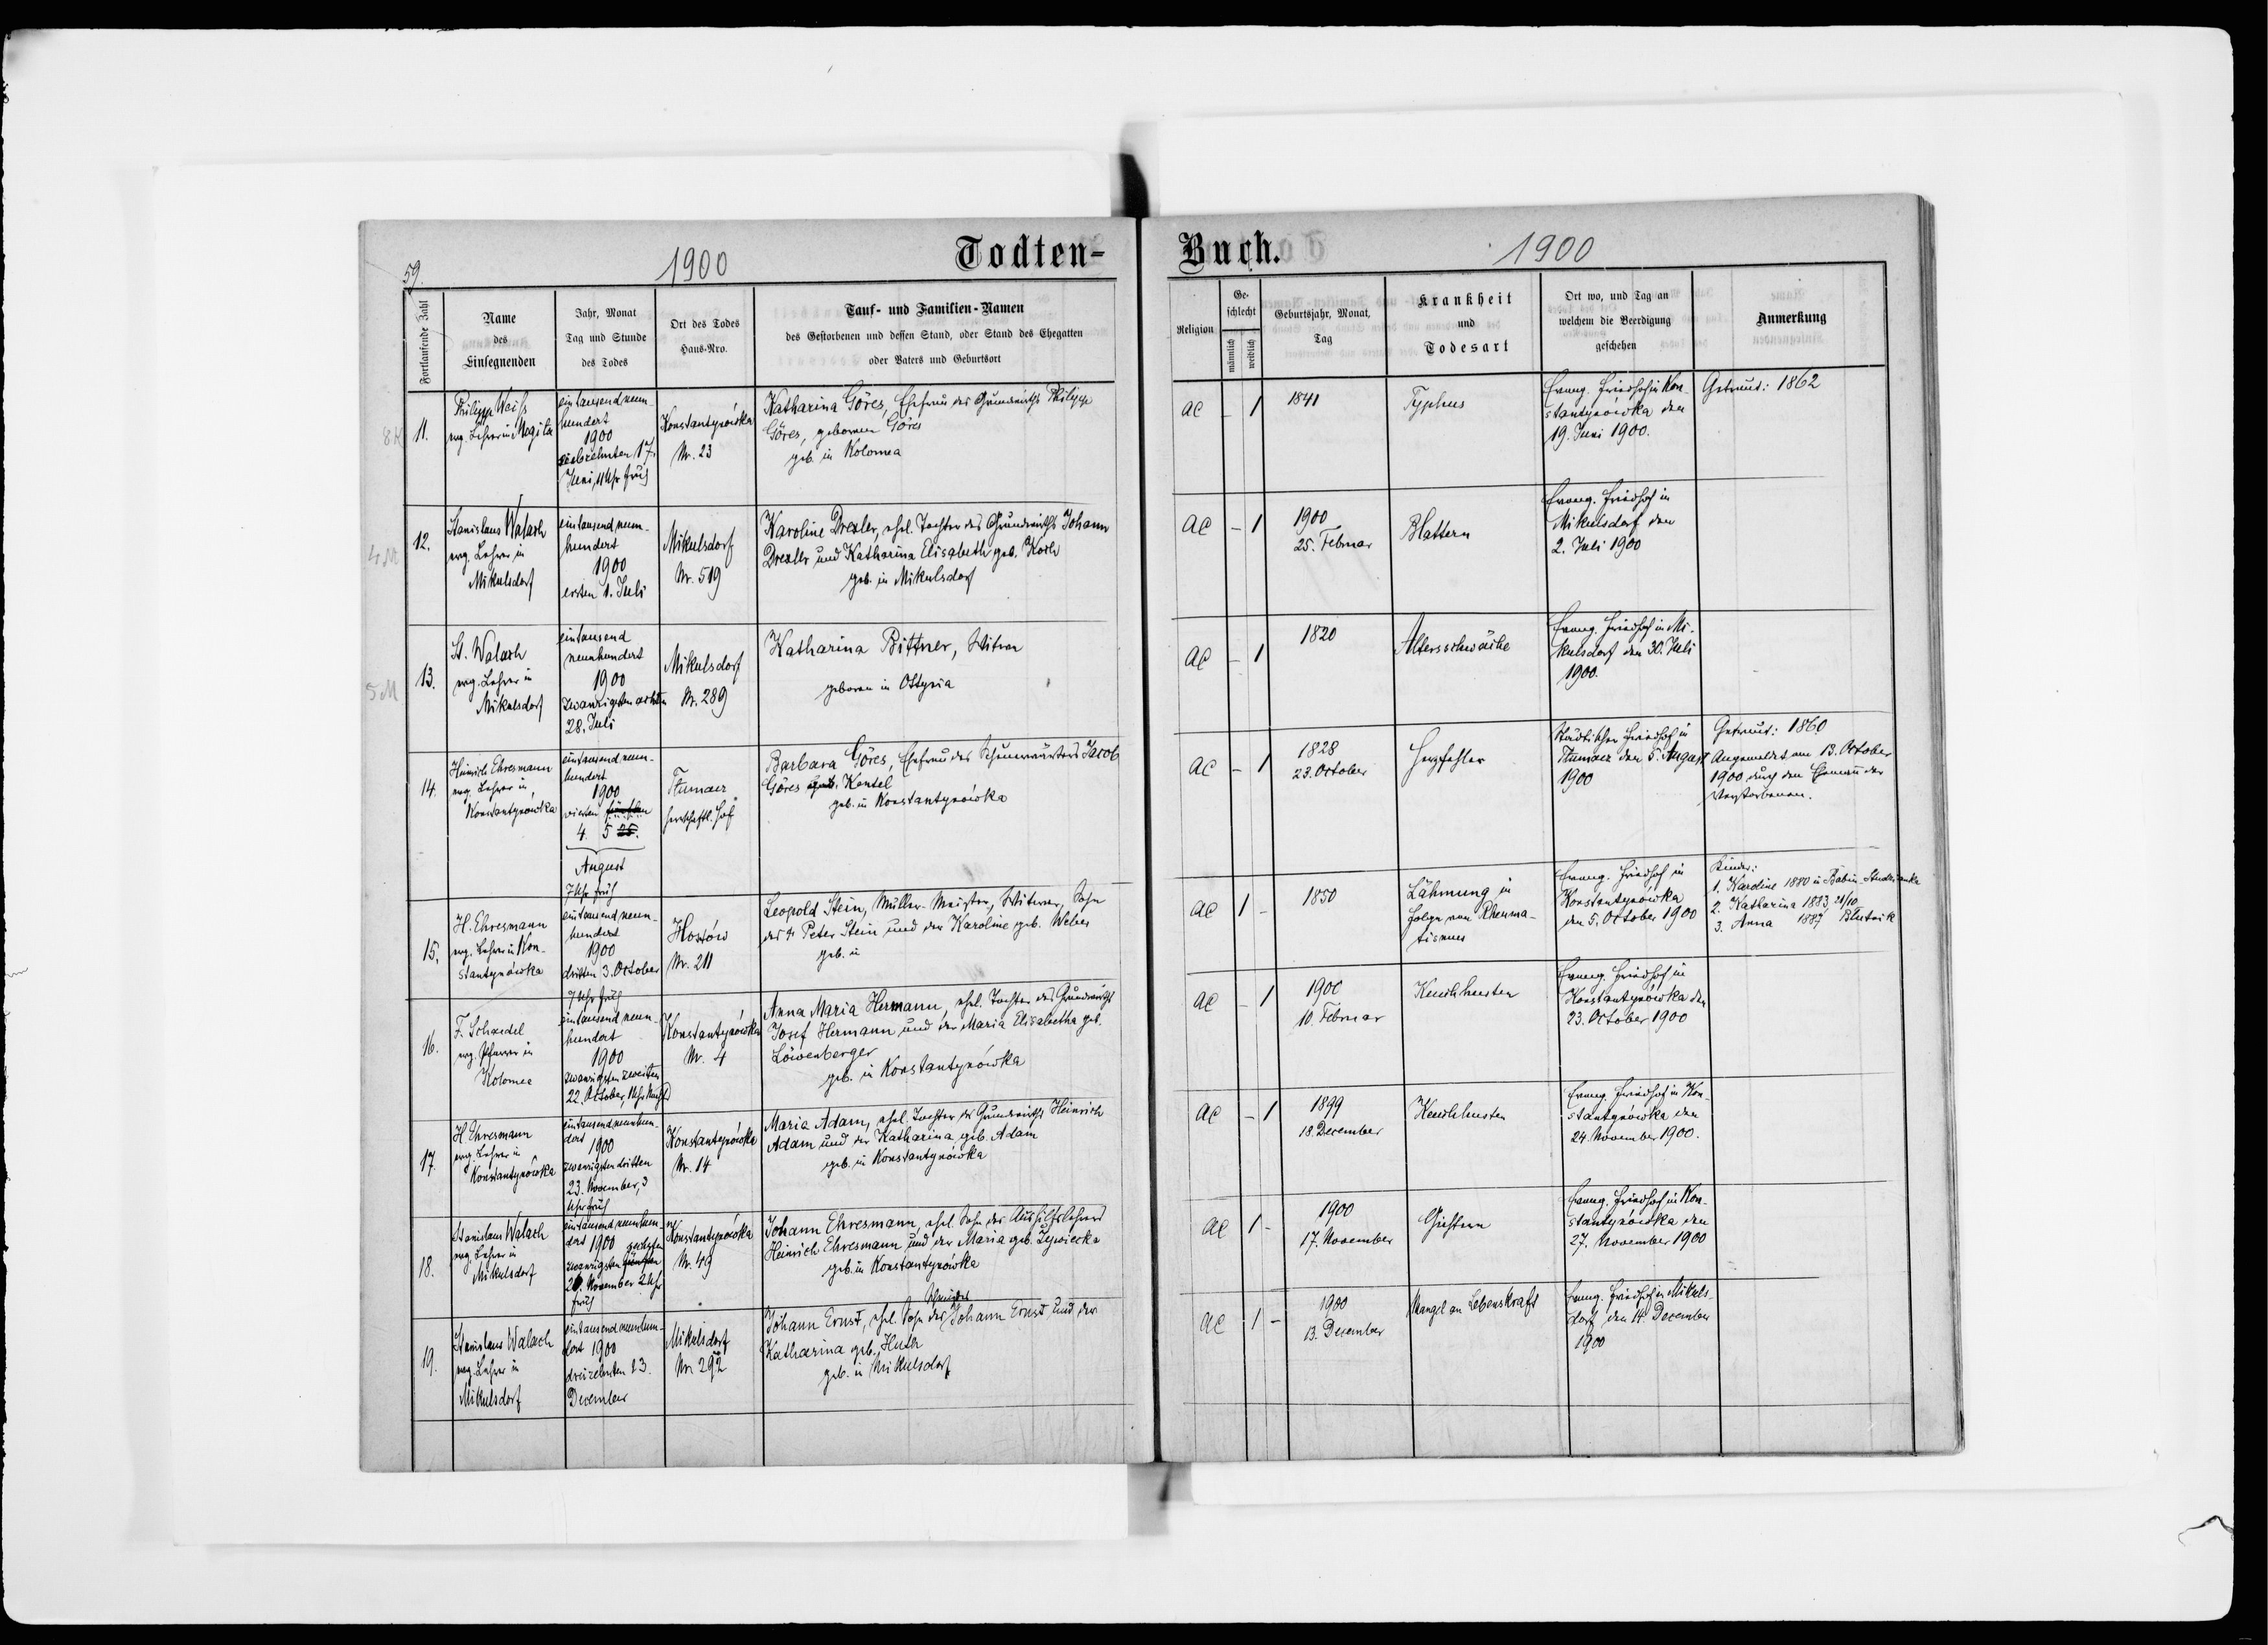 59.
1900
Todten-
Fortlaufende Zahl
Name
des
Einsegnenden
Jahr, Monat
Tag und Stunde
des Todes
Ort des Todes
Haus-Nro.
Tauf- und Familien-Namen
des Gestorbenen und dessen Stand, oder Stand des Ehegatten
oder Vaters und Geburtsort
8K
11.
Philipp Weiss
evg. Lehrer in Mogila
eintausend neun-
hundert
1900
siebzehnten 17.
Juni, 11 Uhr früh
Konstantynówka
Nr. 23
Katharina Göres, Ehefrau des Grundwirths Philipp
Göres, geborene Göres
geb. in Kolomea
4M
12.
Stanislaus Walach
evg. Lehrer in
Mikulsdorf
eintausend neun-
hundert
1900
ersten 1. Juli
Mikulsdorf
Nr. 519
Karoline Drexler, ehel. Tochter des Grundwirths Johann
Drexler und Katharina Elisabeth geb. Koch
geb. in Mikulsdorf
5M
13.
St. Walach
evg. Lehrer in
Mikulsdorf
eintausend
neunhundert
1900
zwanzigsten achten
28. Juli
Mikulsdorf
Nr. 289
Katharina Bittner, Witwe
geboren in Ottynia
14.
Heinrich Ehresmann
evg. Lehrer in
Konstantynówka
eintausend neun-
hundert
1900
vierten fünften
4. 5 25.
August
7 Uhr früh
Tlumacz
herrschaftl. Hof
Barbara Göres, Ehefrau des Scheuerwärters Jacob
Göres geb. Kentel
geb. in Konstantynówka
15.
H. Ehresmann
evg. Lehrer in Kon-
stantynówka
eintausend neun-
hundert
1900
dritten 3. October
7 Uhr früh
Hostów
Nr. 211
Leopold Stein, Müller-Meister, Witwer, Sohn
des † Peter Stein und der Karoline geb. Weber
geb. in
16.
F. Schaedel
evg. Pfarrer in
Kolomea
eintausend neun-
hundert
1900
zwanzigsten zweiten
22. October, Uhr Nachts
Konstantynówka
Nr. 4
Anna Maria Hermann, ehel. Tochter des Grundwirths
Josef Hermann und der Maria Elisabetha geb.
Löwenberger
geb. in Konstantynówka
17.
H. Ehresmann
evg. Lehrer in
Konstantynówka
eintausend neunhun-
dert 1900
zwanzigsten dritten
23. November, 3
Uhr früh
Konstantynówka
Nr. 14
Maria Adam, ehel. Tochter des Grundwirths Heinrich
Adam und der Katharina geb. Adam
geb. in Konstantynówka
18.
Stanislaus Walach
evg. Lehrer in
Mikulsdorf
eintausend neunhun-
dert 1900 sechsten
zwanzigsten
26. November 2 Uhr
früh
Konstantynówka
Nr. 49
Johann Ehresmann, ehel. Sohn des Aushilfslehrers
Heinrich Ehresmann und der Maria geb. Zywiecka
geb. in Konstantynówka
19.
Stanislaus Walach
evg. Lehrer in
Mikulsdorf
eintausend neunhun-
dert 1900
dreizehnten 13.
December
Mikulsdorf
Nr. 292
Johann Ernst, ehel. Sohn des Johann Ernst und der
Katharina geb. Huth
geb. in Mikulsdorf
Buch.
1900
Religion
Ge-
schlecht
männlich
weiblich
Geburtsjahr, Monat,
Tag
Krankheit
und
Todesart
Ort wo, und Tag an
welchem die Beerdigung
geschehen
Anmerkung
AC - 1
1841
Typhus
Evang. Friedhof in Kon-
stantynówka den
19. Juni 1900.
Getraut: 1862
AC - 1
1900
25. Februar
Blattern
Evang. Friedhof in
Mikulsdorf den
2. Juli 1900
AC - 1
1820
Altersschwäche
Evang. Friedhof in Mi-
kulsdorf den 30. Juli
1900.
AC - 1
1828
23. October
Herzfehler
Städtischer Friedhof in
Tlumacz den 5. August
1900
Getraut: 1860
Angemeldet am 13. October
1900 durch den Ehemann der
Verstorbenen.
AC 1 -
1850
Lähmung in
Folge von Rheuma-
tismus
Evang. Friedhof in
Konstantynówka
den 5. October 1900
Kinder:
1. Karoline 1880 in Babin-Studzianka
2. Katharina 1883 21/10
3. Anna 1887 Blutnik
AC - 1
1900
10. Februar
Keuchhusten
Evang. Friedhof in
Konstantynówka den
23. October 1900
AC - 1
1899
18. December
Keuchhusten
Evang. Friedhof in Kon-
stantynówka den
24. November 1900.
AC 1 -
1900
17. November
Gichtern
Evang. Friedhof in Kon-
stantynówka den
27. November 1900
AC 1 -
1900
13. December
Mangel an Lebenskraft
Evang. Friedhof in Mikuls-
dorf den 14. December
1900